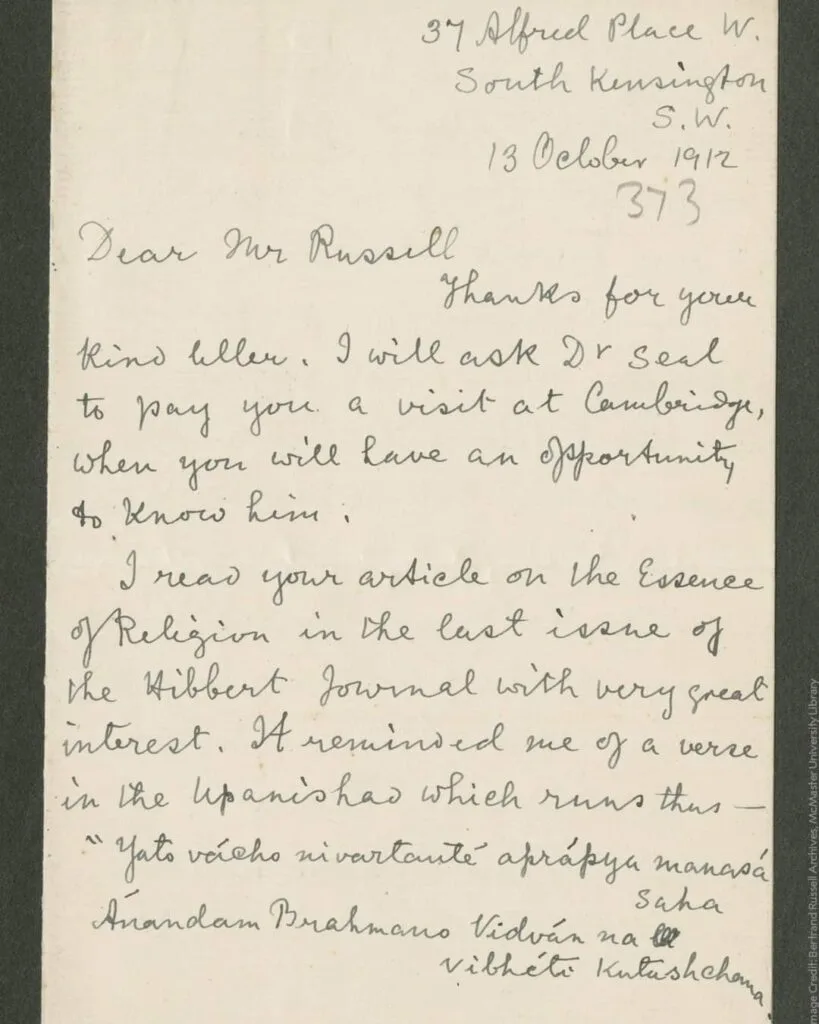 37 Alfred Place W.
South Kensington
S.W.
13 October 1912
373
Dear Mr Russell
Thanks for your
kind letter. I will ask Dr Seal
to pay you a visit at Cambridge,
when you will have an opportunity
to know him.
I read your article on the Essence
of Religion in the last issue of
the Hibbert Journal with very great
interest. It reminded me of a verse
in the Upanishad which runs thus —
"Yato vácho nivartanté aprápya manasá
saha
Ánandam Brahmano Vidván na
vibhéti Kutashchana.
Image Credit: Bertrand Russell Archives, McMaster University Library